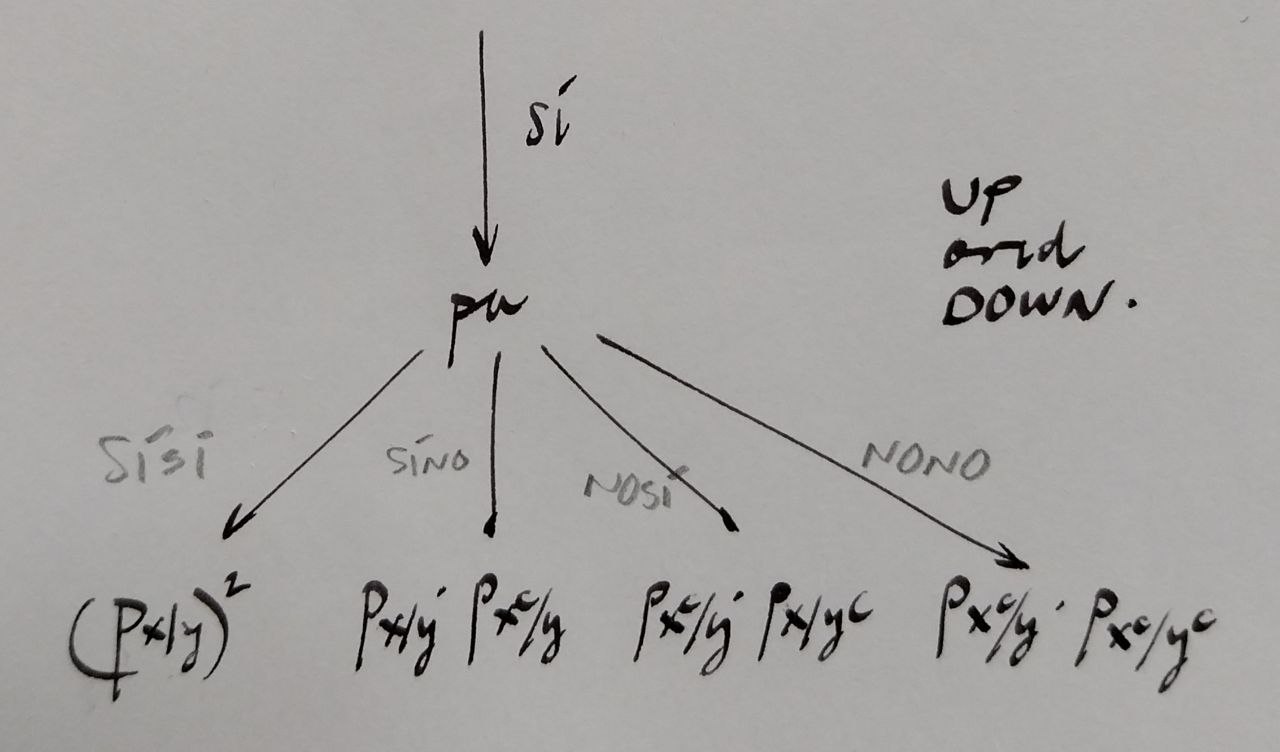 sí
UP
and
DOWN.
pu
Sísí
SÍNO
NOSÍ
NONO
(Px/y)²
Px/y · Pxᶜ/y
Pxᶜ/y · Px/yᶜ
Pxᶜ/y · Pxᶜ/yᶜ